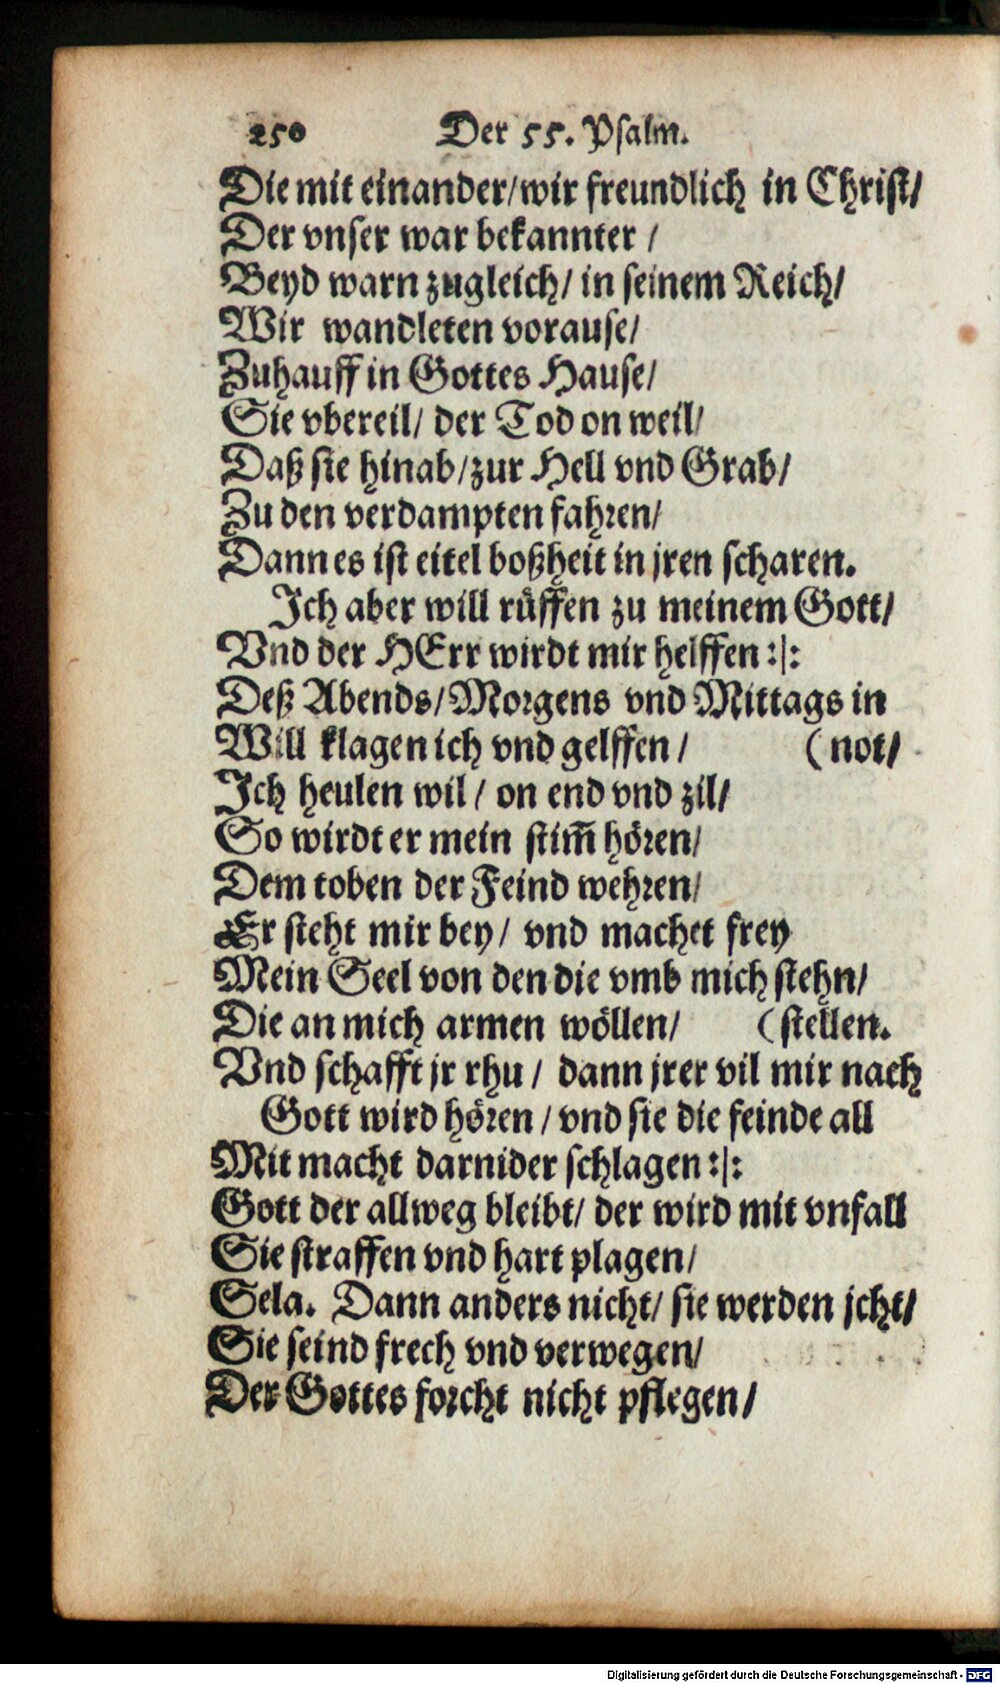 250 Der 55. Psalm.
Die mit einander/wir freundlich in Christ/
Der vnser war bekannter /
Beyd warn zugleich/ in seinem Reich/
Wir wandleten vorause/
Zuhauff in Gottes Hause/
Sie vbereil/ der Tod on weil/
Daß sie hinab/zur Hell vnd Grab/
Zu den verdampten fahren/
Dann es ist eitel boßheit in jren scharen.
Ich aber will rüffen zu meinem Gott/
Vnd der HErr wirdt mir helffen :|:
Deß Abends/Morgens vnd Mittags in
Will klagen ich vnd gelffen / (not/
Ich heulen wil/ on end vnd zil/
So wirdt er mein stim̃ hören/
Dem toben der Feind wehren/
Er steht mir bey/ vnd machet frey
Mein Seel von den die vmb mich stehn/
Die an mich armen wöllen/ (stellen.
Vnd schafft jr rhu/ dann jrer vil mir nach
Gott wird hören/vnd sie die feinde all
Mit macht darnider schlagen :|:
Gott der allweg bleibt/ der wird mit vnfall
Sie straffen vnd hart plagen/
Sela. Dann anders nicht/ sie werden jcht/
Sie seind frech vnd verwegen/
Der Gottes forcht nicht pflegen/
Digitalisierung gefördert durch die Deutsche Forschungsgemeinschaft - DFG